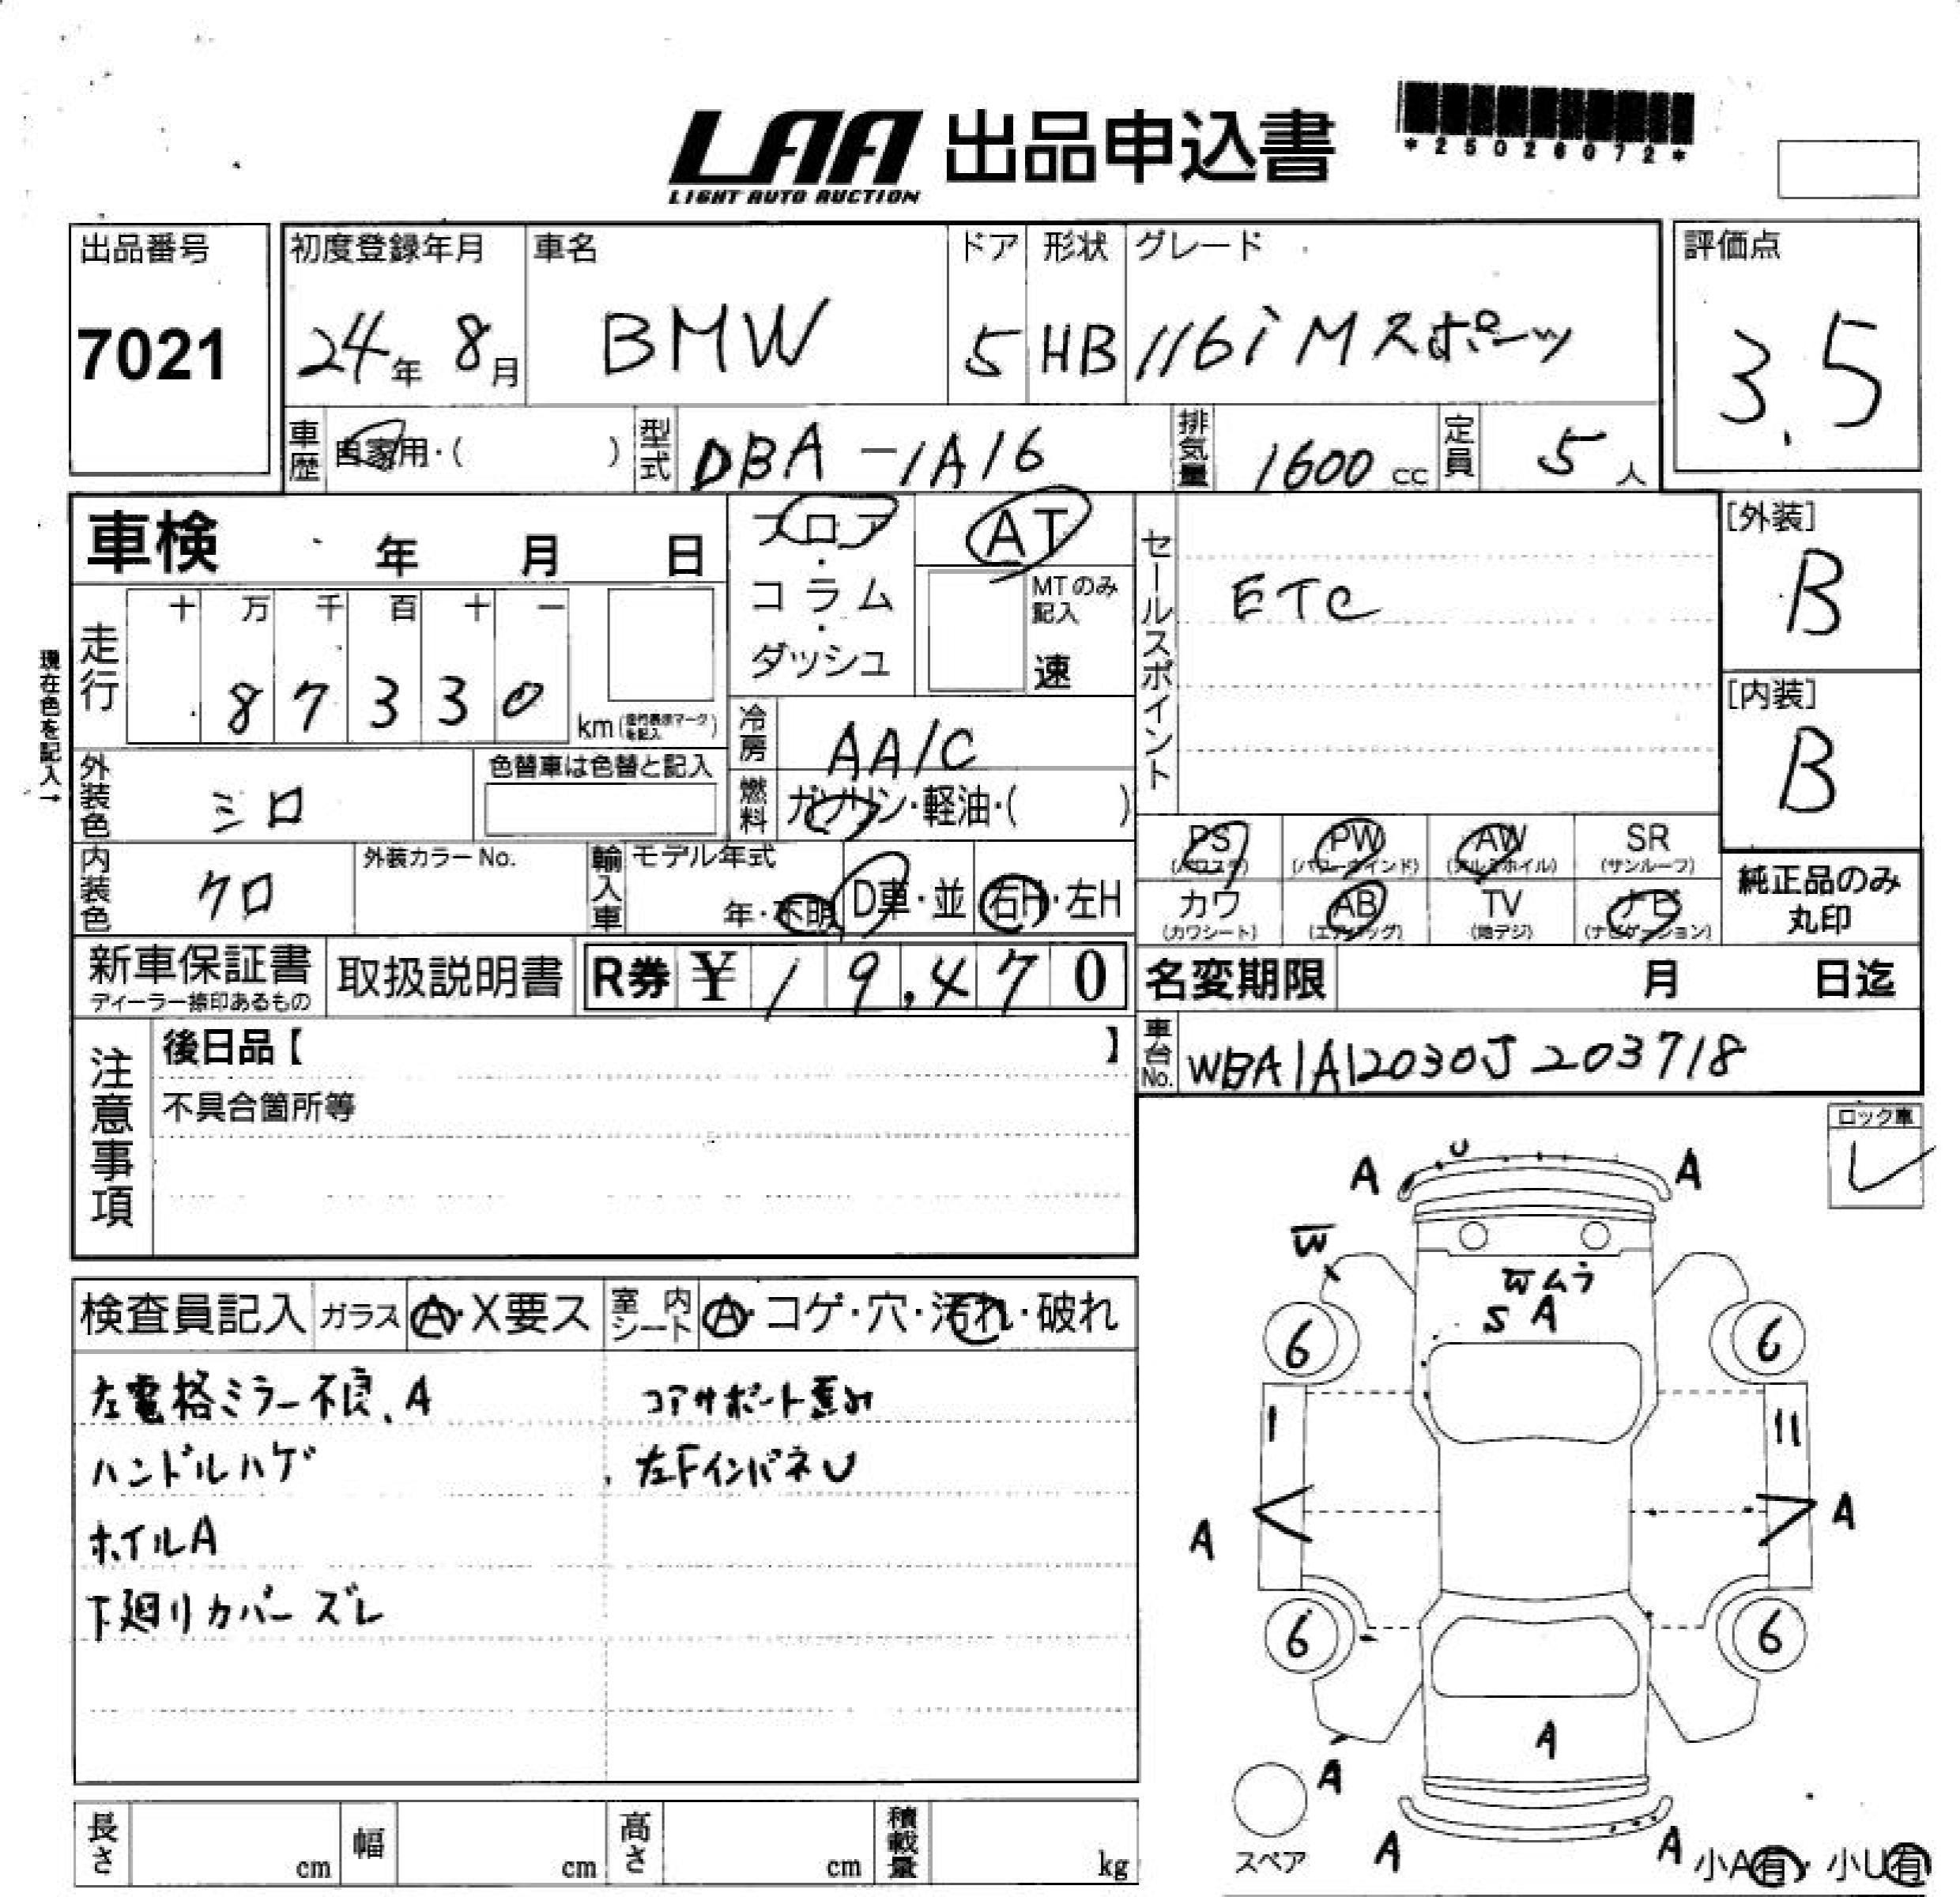 LAA 出品申込書
LIGHT AUTO AUCTION
*25026072*
出品番号
7021
初度登録年月
24年 8月
車名
BMW
ドア
5
形状
HB
グレード
116i Mスポーツ
評価点
3.5
車歴 自家用・( )
型式 DBA-1A16
排気量 1600 cc
定員 5 人
車検 年 月 日
フロア・コラム・ダッシュ
AT
MTのみ記入
速
セールスポイント
ETC
[外装]
B
[内装]
B
現在色を記入→
走行
十 万 千 百 十 一
8 7 3 3 0
km
冷房 AA/C
燃料 ガソリン・軽油・( )
外装色 シロ
色替車は色替と記入
内装色 クロ
外装カラーNo.
輸入車 モデル年式
年・不明 D車・並 右H・左H
PS (パワステ)
PW (パワーウインド)
AW (アルミホイル)
SR (サンルーフ)
カワ (カワシート)
AB (エアバッグ)
TV (地デジ)
ナビ (ナビゲーション)
純正品のみ
丸印
新車保証書
ディーラー捺印あるもの
取扱説明書
R券 ¥19,470
名変期限 月 日迄
車台No. WBA1A12030J203718
注意事項
後日品【 】
不具合箇所等
ロック車
検査員記入 ガラス A・X要ス 室内シート A・コゲ・穴・汚れ・破れ
左電格ミラー不良、A
コアサポート歪み
ハンドルハゲ
左FインパネU
ホイルA
下廻りカバーズレ
A U A
W
Wムラ
S A
6 6
A A
6 6
A
A
スペア
A A
小A有・小U有
長さ cm 幅 cm 高さ cm 積載量 kg